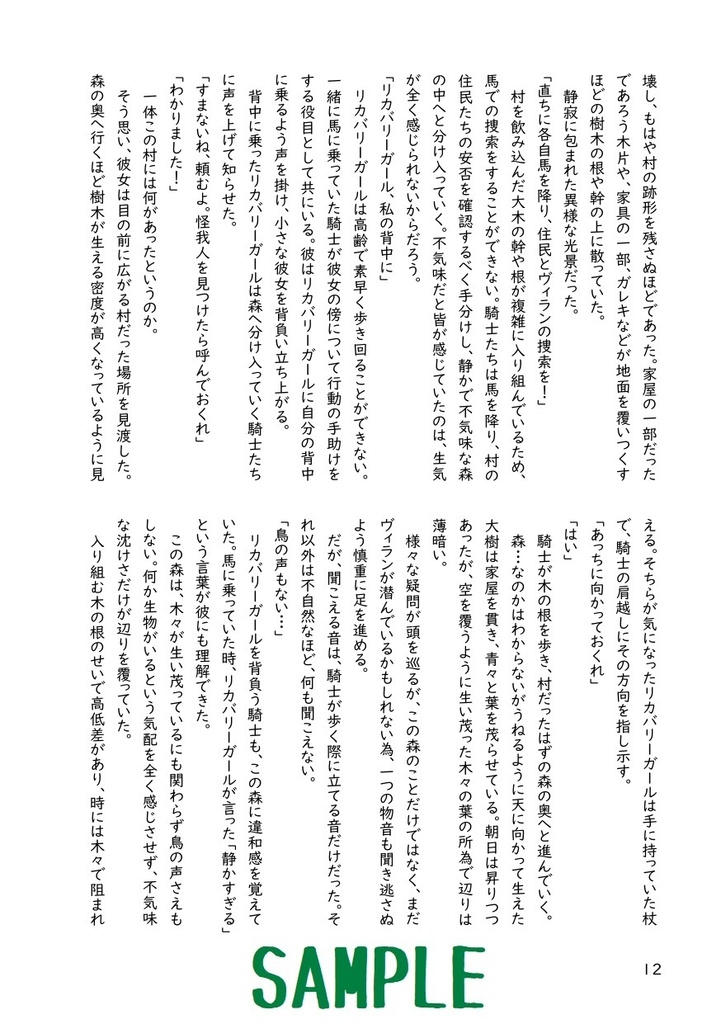 壊し、もはや村の跡形を残さぬほどであった。家屋の一部だった
であろう木片や、家具の一部、ガレキなどが地面を覆いつくす
ほどの樹木の根や幹の上に散っていた。
静寂に包まれた異様な光景だった。
「直ちに各自馬を降り、住民とヴィランの捜索を!」
村を飲み込んだ大木の幹や根が複雑に入り組んでいるため、
馬での捜索をすることができない。騎士たちは馬を降り、村の
住民たちの安否を確認するべく手分けし、静かで不気味な森
の中へと分け入っていく。不気味だと皆が感じていたのは、生気
が全く感じられないからだろう。
「リカバリーガール、私の背中に」
リカバリーガールは高齢で素早く歩き回ることができない。
一緒に馬に乗っていた騎士が彼女の傍について行動の手助けを
する役目として共にいる。彼はリカバリーガールに自分の背中
に乗るよう声を掛け、小さな彼女を背負い立ち上がる。
背中に乗ったリカバリーガールは森へ分け入っていく騎士たち
に声を上げて知らせた。
「すまないね、頼むよ。怪我人を見つけたら呼んでおくれ」
「わかりました!」
一体この村には何があったというのか。
そう思い、彼女は目の前に広がる村だった場所を見渡した。
森の奥へ行くほど樹木が生える密度が高くなっているように見
える。そちらが気になったリカバリーガールは手に持っていた杖
で、騎士の肩越しにその方向を指し示す。
「あっちに向かっておくれ」
「はい」
騎士が木の根を歩き、村だったはずの森の奥へと進んでいく。
森…なのかはわからないがうねるように天に向かって生えた
大樹は家屋を貫き、青々と葉を茂らせている。朝日は昇りつつ
あったが、空を覆うように生い茂った木々の葉の所為で辺りは
薄暗い。
様々な疑問が頭を巡るが、この森のことだけではなく、まだ
ヴィランが潜んでいるかもしれない為、一つの物音も聞き逃さぬ
よう慎重に足を進める。
だが、聞こえる音は、騎士が歩く際に立てる音だけだった。そ
れ以外は不自然なほど、何も聞こえない。
「鳥の声もない…」
リカバリーガールを背負う騎士も、この森に違和感を覚えて
いた。馬に乗っていた時、リカバリーガールが言った「静かすぎる」
という言葉が彼にも理解できた。
この森は、木々が生い茂っているにも関わらず鳥の声さえも
しない。何か生物がいるという気配を全く感じさせず、不気味
な沈けさだけが辺りを覆っていた。
入り組む木の根のせいで高低差があり、時には木々で阻まれ
12
SAMPLE